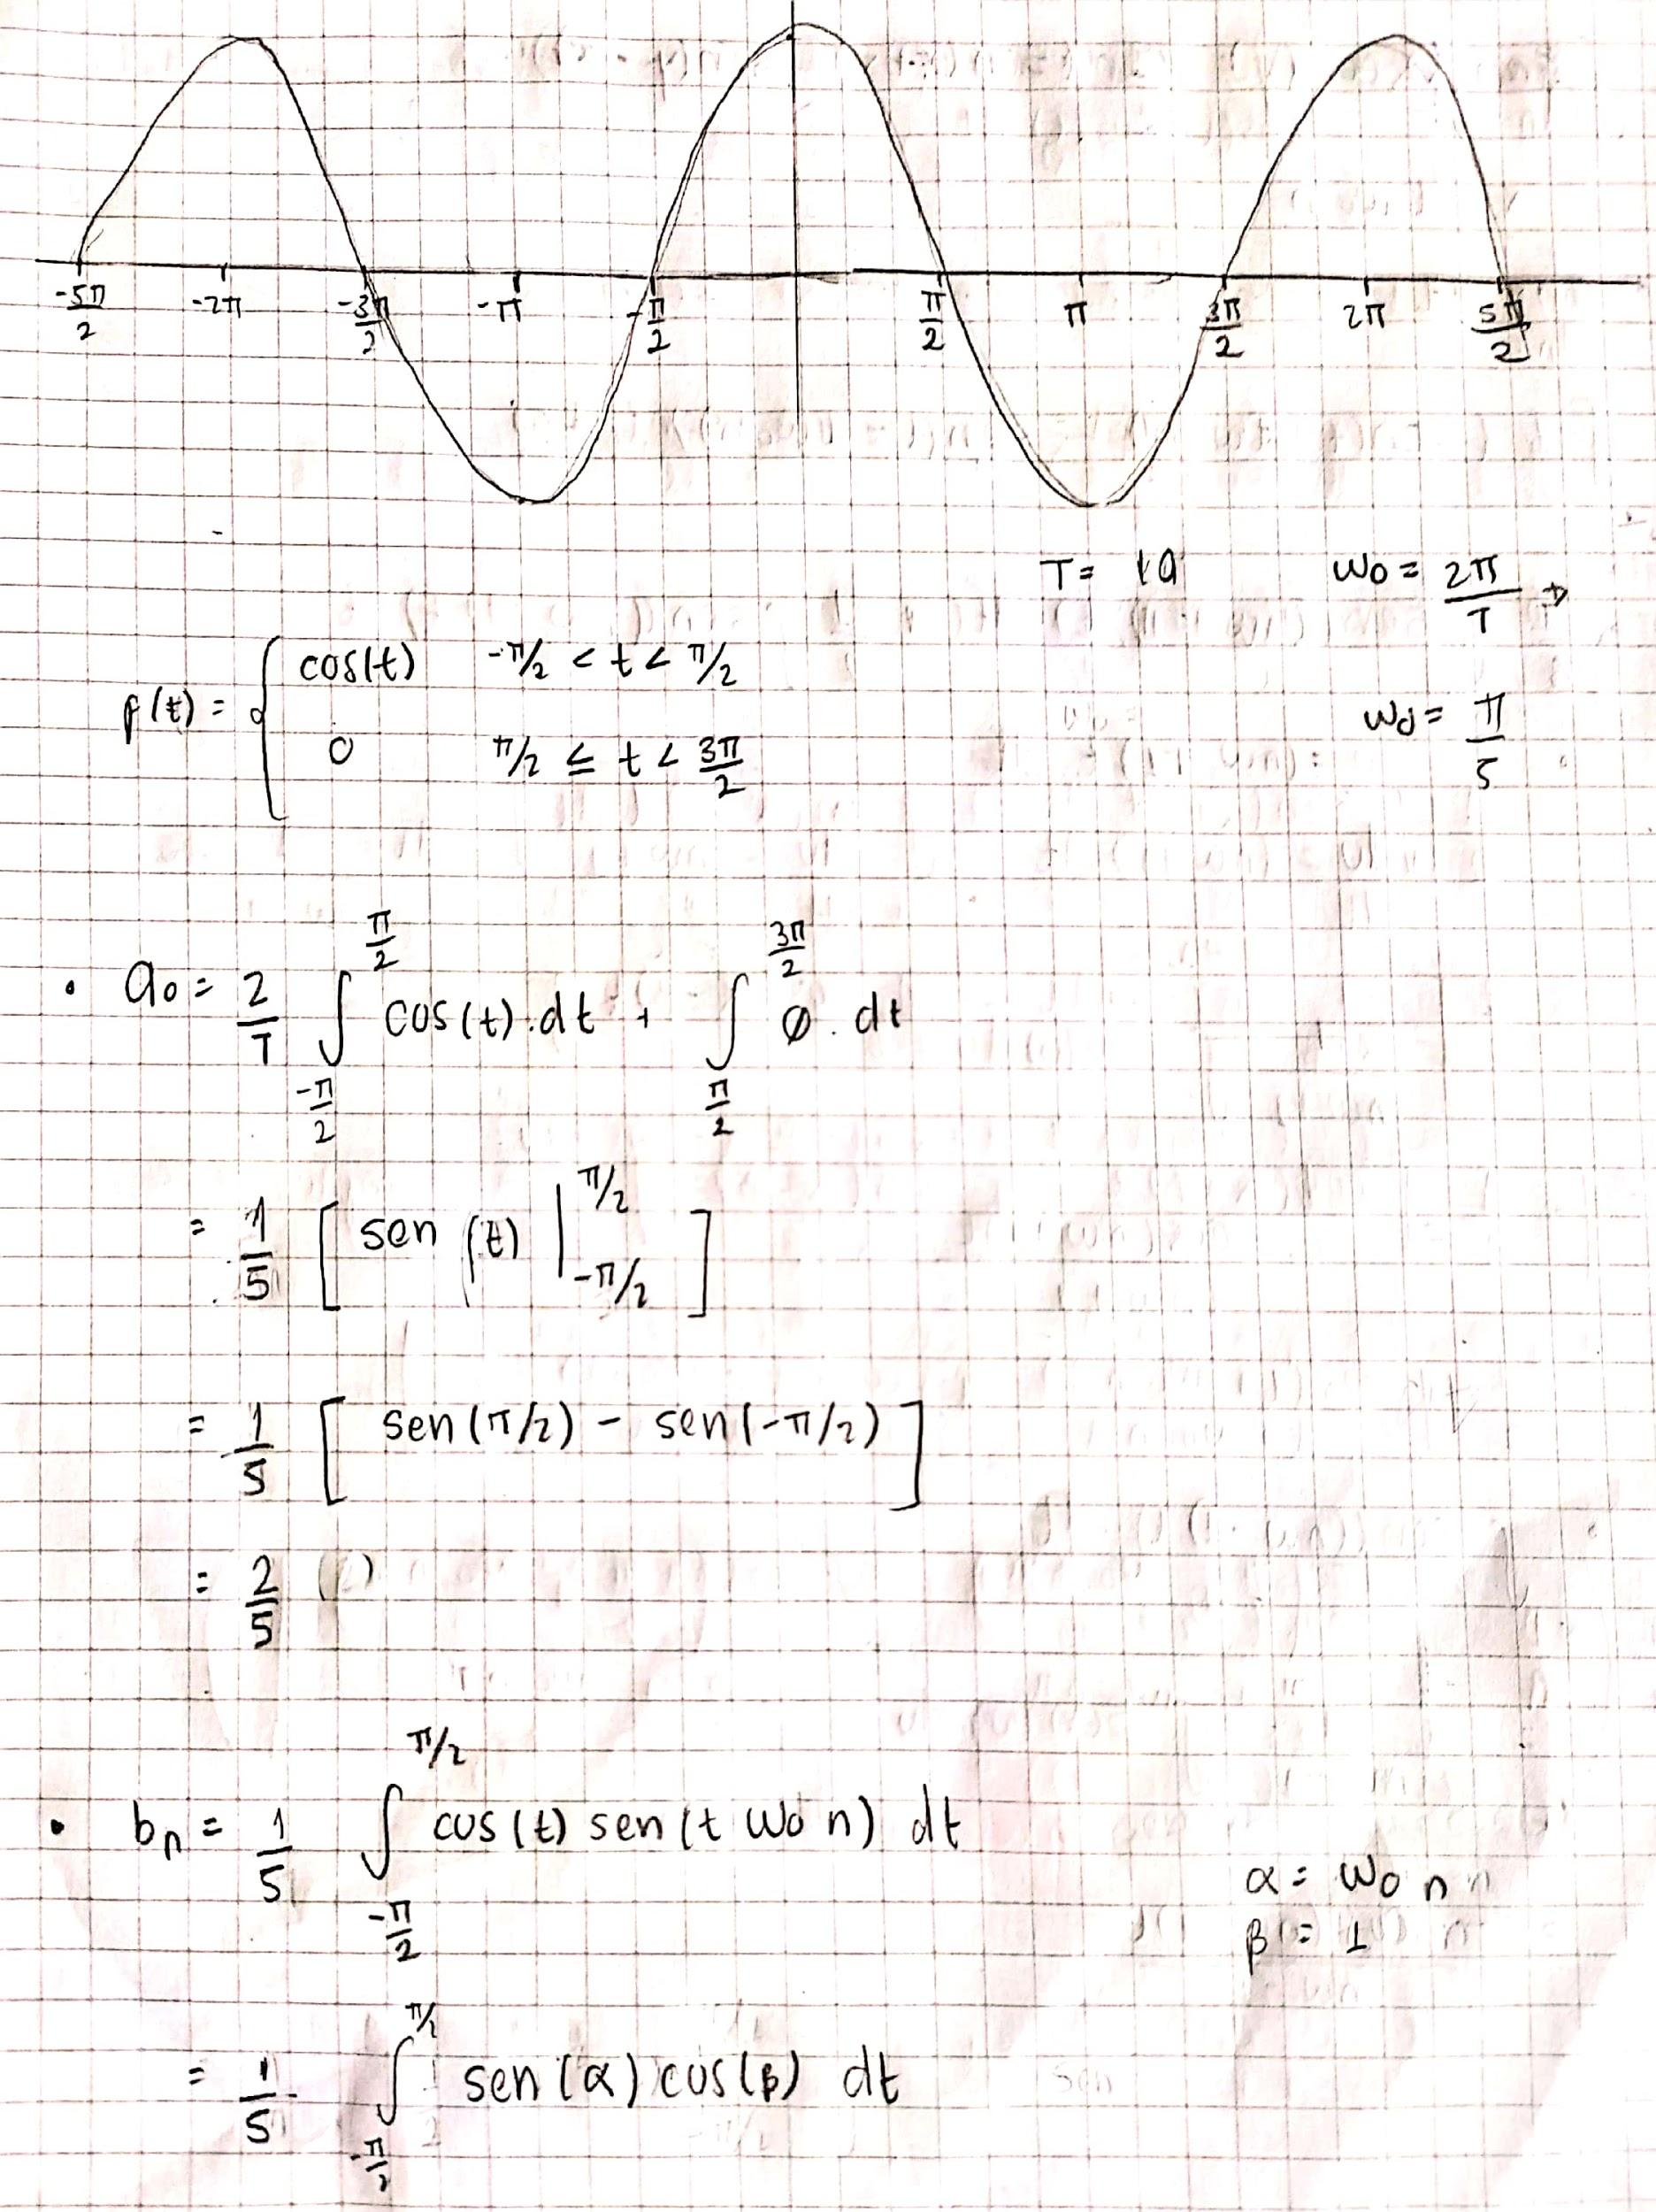 -5π/2 -2π -3π/2 -π -π/2 π/2 π 3π/2 2π 5π/2
T= 10 ω0 = 2π/T →
f(t) = { cos(t) -π/2 < t < π/2
0 π/2 ≤ t < 3π/2
ω0 = π/5
• a0 = 2/T ∫_{-π/2}^{π/2} cos(t).dt + ∫_{π/2}^{3π/2} 0. dt
= 1/5 [ sen (t) |_{-π/2}^{π/2} ]
= 1/5 [ sen(π/2) - sen(-π/2) ]
= 2/5
• bn = 1/5 ∫_{-π/2}^{π/2} cos(t) sen(t ω0 n) dt
α = ω0 n
β = 1
= 1/5 ∫_{-π/2}^{π/2} sen(α) cos(β) dt